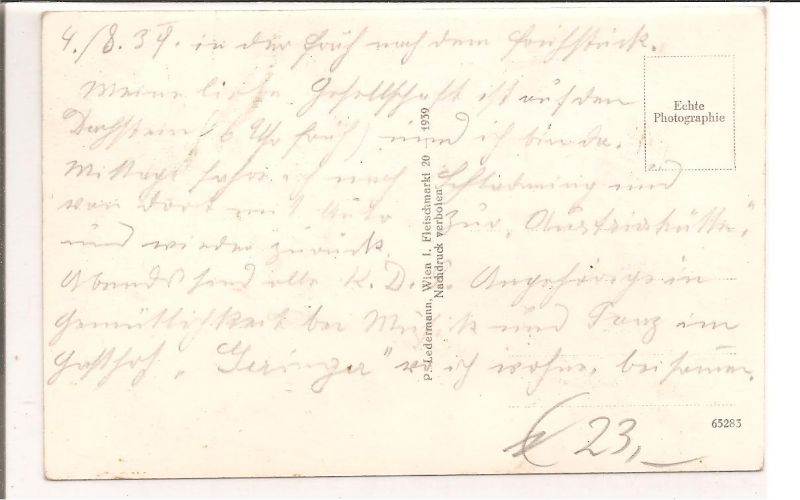 4./8.39. in der Früh nach dem Frühstück.
Meine liebe Gesellschaft ist auf den
Dachstein (6 Uhr früh) und ich bin da.
Mittags fahre ich nach Schladming und
von dort mit Auto zur „Austriahütte"
und wieder zurück.
Abends sind alle K.D. Angehörige in
Gemütlichkeit bei Musik und Tanz im
Gasthof „Geringer" wo ich wohne, beisammen.
Echte
Photographie
P. Ledermann, Wien I, Fleischmarkt 20 1939
Nachdruck verboten
65283
€ 23,—